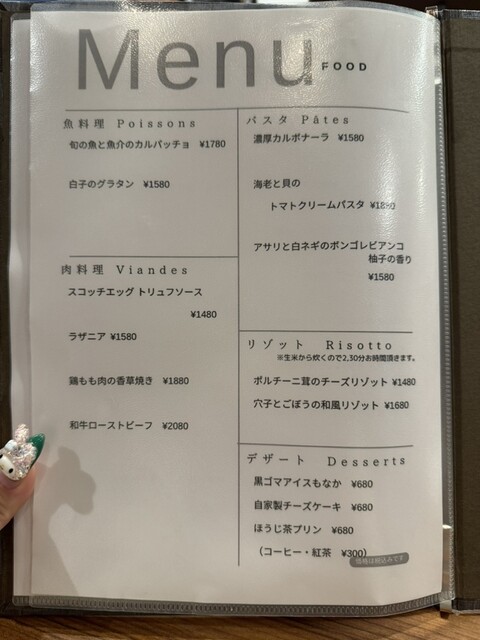 Menu FOOD
魚料理 Poissons
旬の魚と魚介のカルパッチョ ¥1780
白子のグラタン ¥1580
肉料理 Viandes
スコッチエッグ トリュフソース
¥1480
ラザニア ¥1580
鶏もも肉の香草焼き ¥1880
和牛ローストビーフ ¥2080
パスタ Pâtes
濃厚カルボナーラ ¥1580
海老と貝の
トマトクリームパスタ
アサリと白ネギのボンゴレビアンコ
柚子の香り
¥1580
リゾット Risotto
※生米から炊くので2,30分お時間頂きます。
ポルチーニ茸のチーズリゾット ¥1480
穴子とごぼうの和風リゾット ¥1680
デザート Desserts
黒ゴマアイスもなか ¥680
自家製チーズケーキ ¥680
ほうじ茶プリン ¥680
（コーヒー・紅茶 ¥300）
価格は税込みです